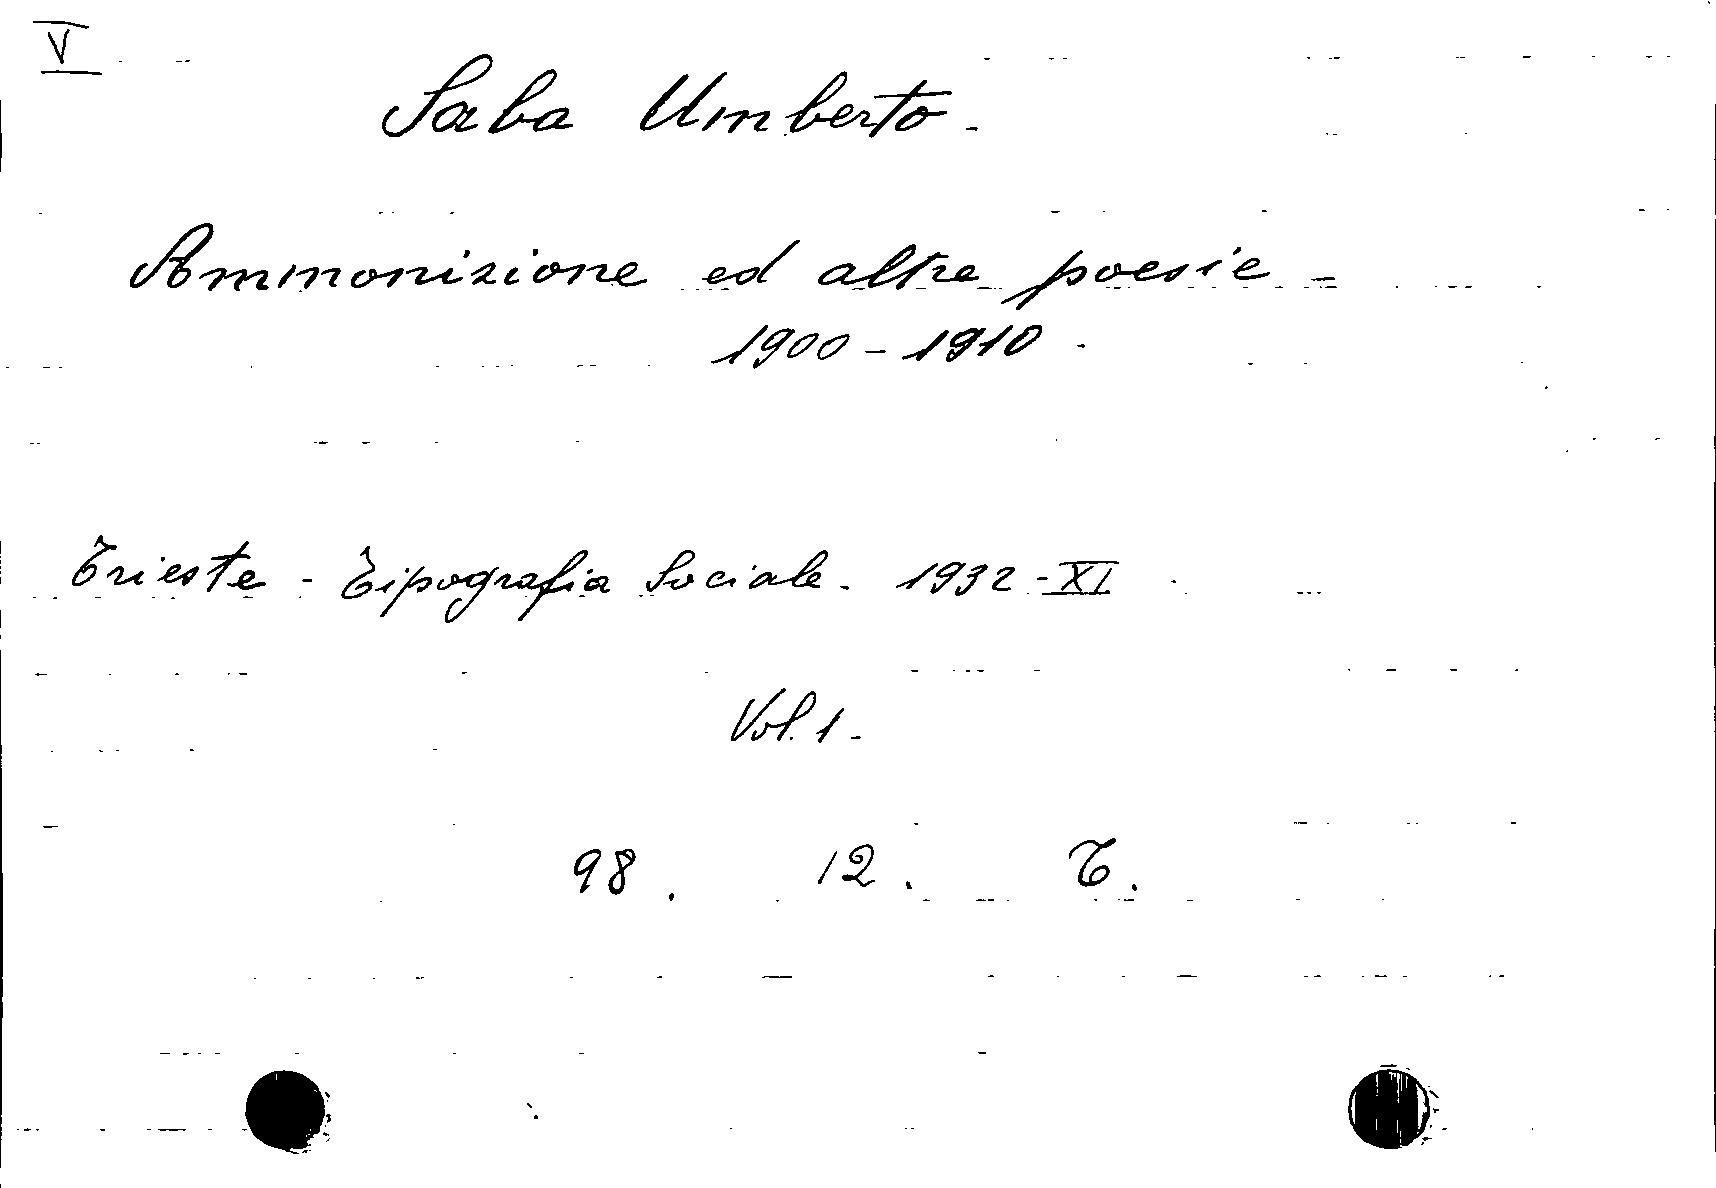 V
Saba Umberto.
Ammonizione ed altre poesie -
1900 - 1910.
Trieste - Tipografia Sociale. 1932 - XI.
Vol. 1.
98. 12. T.